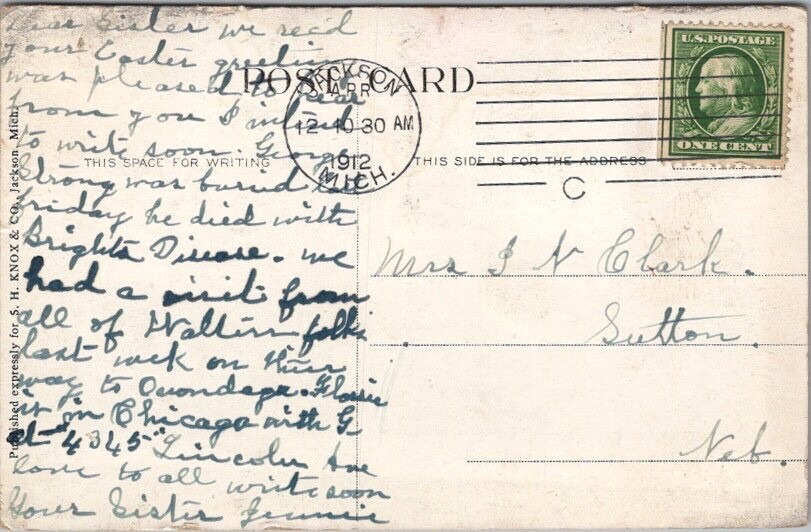 Dear Sister we rec'd
your Easter greeting
was pleased to hear
from you I intend
to write soon. George
Strong was buried
friday he died with
Brights Disease. we
had a visit from
all of Walters folks
last week on their
way to Onondaga. Flossie
is in Chicago with G
at "4345" Lincoln Ave
love to all write soon
Your Sister Jennie
POST CARD
JACKSON
APR
12-10 30 AM
1912
MICH.
U.S. POSTAGE
ONE CENT
C
THIS SPACE FOR WRITING
THIS SIDE IS FOR THE ADDRESS
Mrs I N Clark.
Sutton.
Neb.
Published expressly for S. H. KNOX & CO., Jackson, Mich.